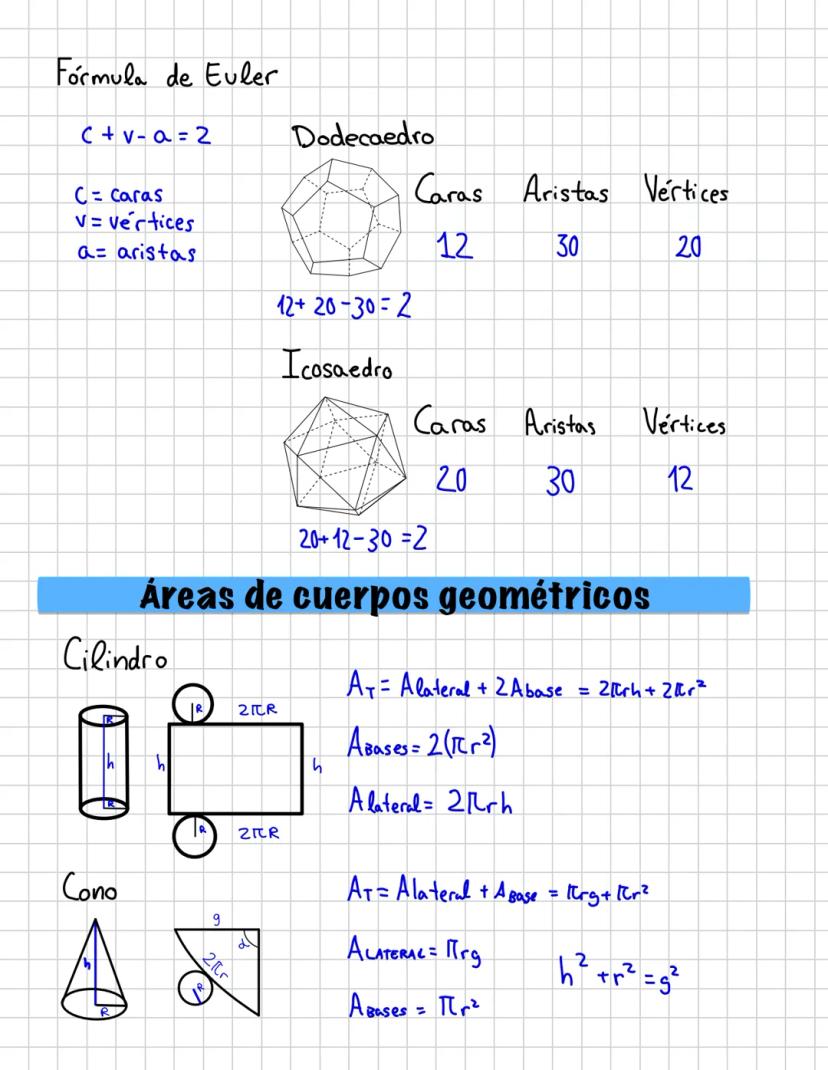 Fórmula de Euler
c + v - a = 2
C = caras
v = vértices
a = aristas
Dodecaedro
Caras Aristas Vértices
12 30 20
12 + 20 - 30 = 2
Icosaedro
Caras Aristas Vértices
20 30 12
20 + 12 - 30 = 2
Áreas de cuerpos geométricos
Cilindro
R
h
R
R 2πR
h h
R 2πR
A_T = Alateral + 2Abase = 2πrh + 2πr²
A Bases = 2(πr²)
Alateral = 2πrh
Cono
h
R
g
α
2πr
R
A_T = Alateral + A Base = πrg + πr²
A LATERAL = πrg
h² + r² = g²
A Bases = πr²